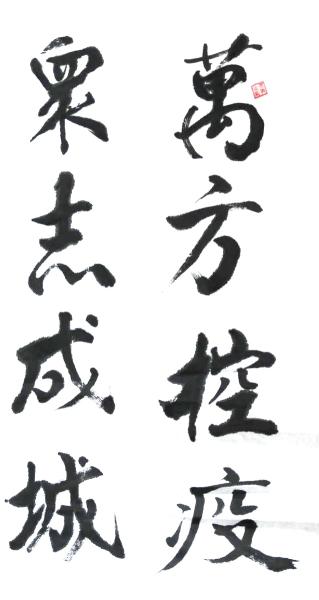 萬方控疫
眾志成城